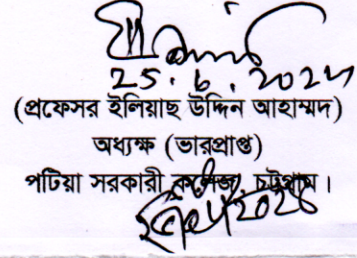 25.6.202
(প্রফেসর ইলিয়াছ উদ্দিন আহাম্মদ)
অধ্যক্ষ (ভারপ্রাপ্ত)
পটিয়া সরকারী কলেজ, চট্টগ্রাম।